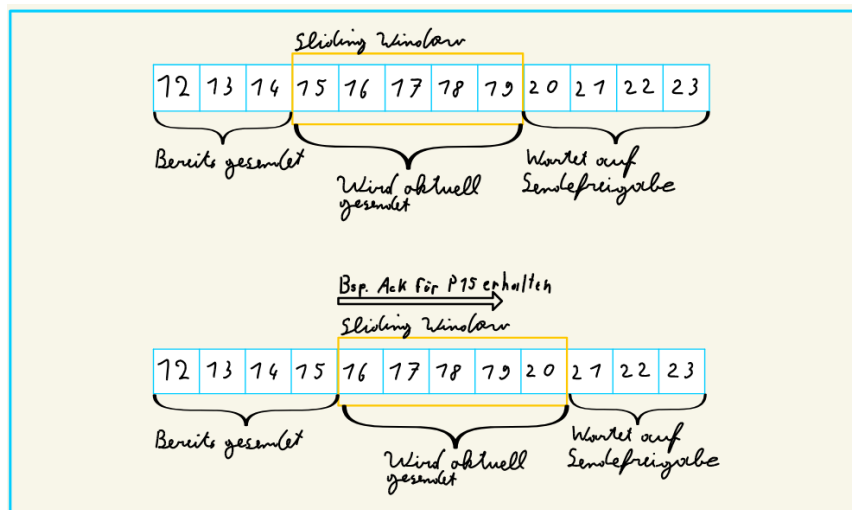 Sliding Window
12 13 14 15 16 17 18 19 20 21 22 23
Bereits gesendet
Wird aktuell
gesendet
Wartet auf
Sendefreigabe
Bsp. Ack für P15 erhalten
Sliding Window
12 13 14 15 16 17 18 19 20 21 22 23
Bereits gesendet
Wird aktuell
gesendet
Wartet auf
Sendefreigabe